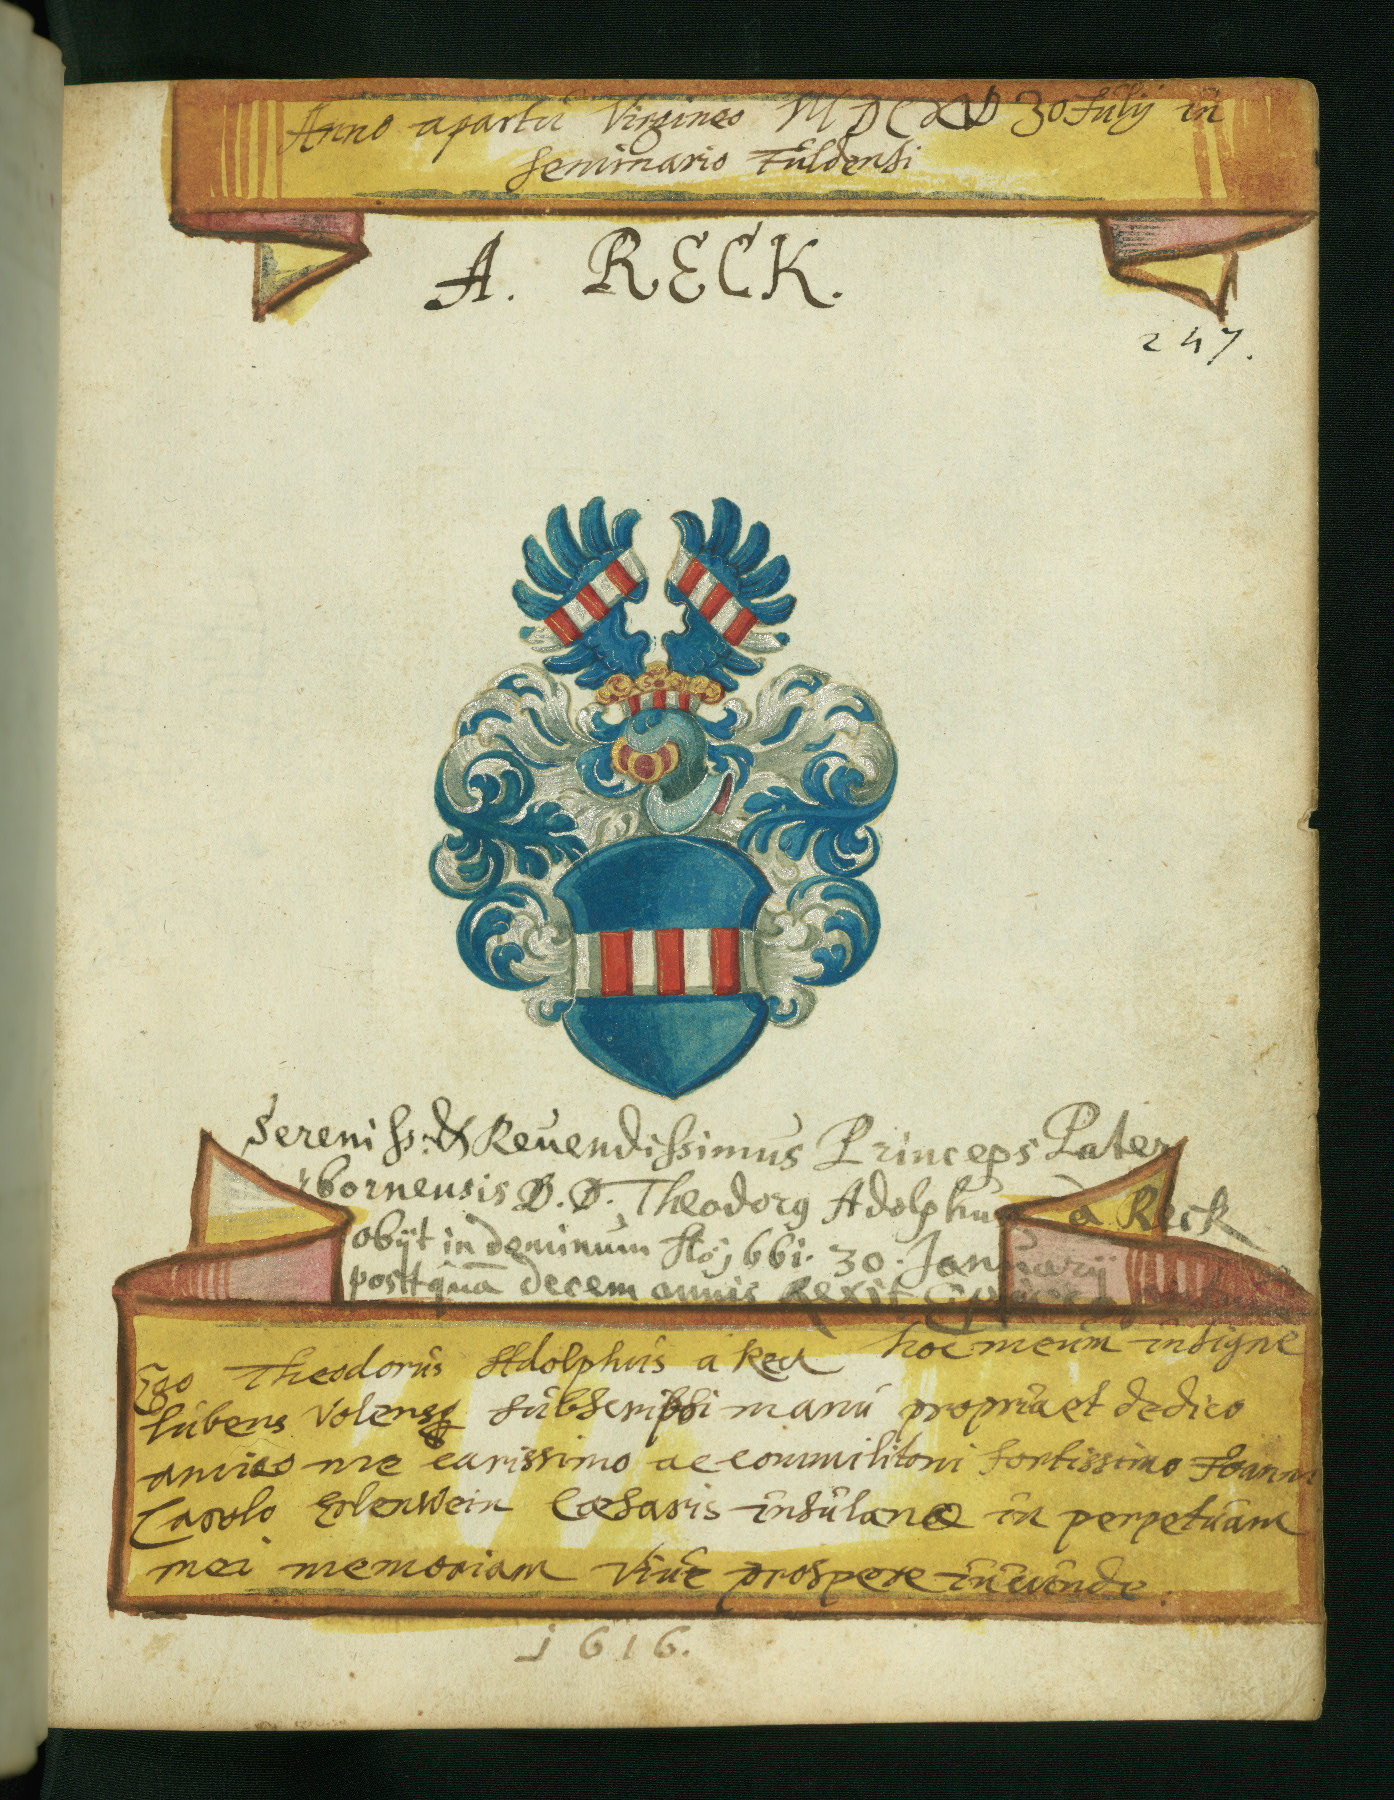 Anno apartu Virgineo MDCXVI 30 Julij in
Seminario Fuldensi
A. RECK.
247.
Sereniss: & Reuendissimus Princeps Pater
bornensis D. D. Theodorq Adolphus a Reck
obijt in dominum Aõ 1661. 30. Januarij
posttquã decem annis Rexit
Ego Theodorus Adolphus a Reck hoc meum insigne
lubens Volensq subscripsi manu propria et dedico
amico me carissimo ac commilitoni fortissimo Joanni
Carolo Erlenwein Cæsaris insulano in perpetuam
mei memoriam Viue prospere iucunde.
1616.